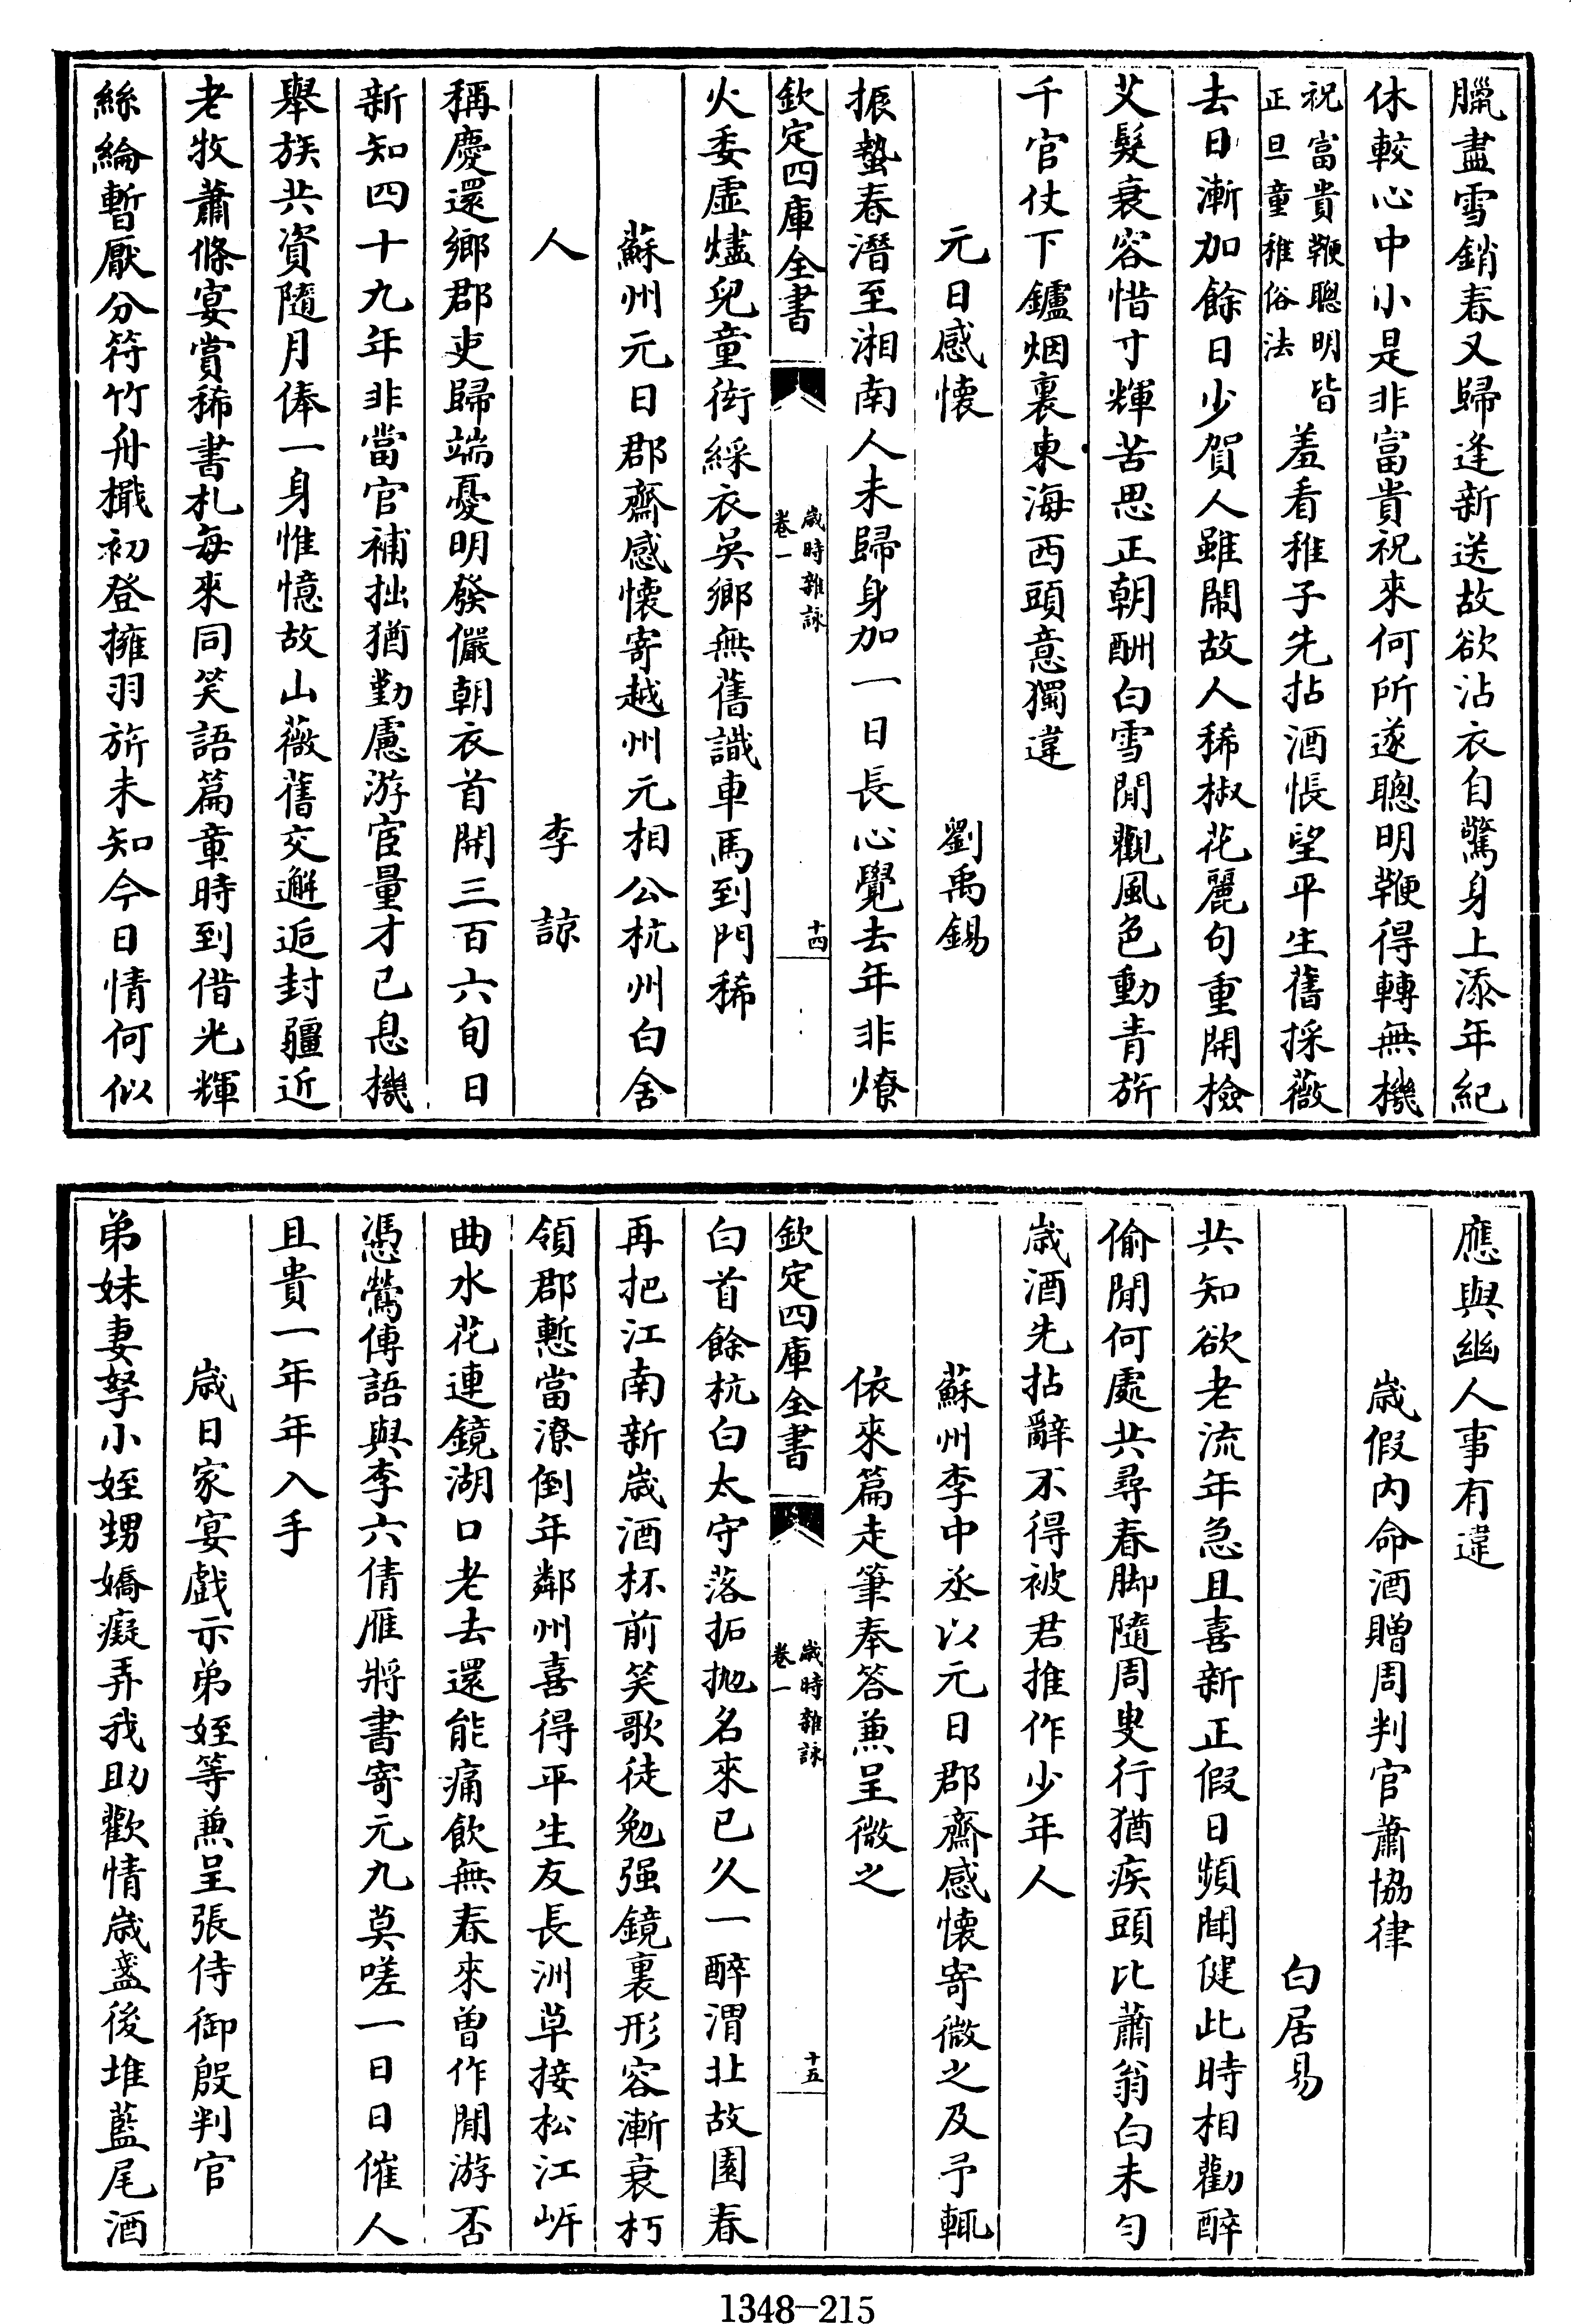 臘盡雪銷春又歸逢新送故欲沾衣自驚身上添年紀
休較心中小是非富貴祝來何所遂聰明鞭得轉無機
祝富貴鞭聰明皆
正旦童稚俗法
羞看稚子先拈酒悵望平生舊採薇
去日漸加餘日少賀人雖鬧故人稀椒花麗句重開檢
艾髮衰容惜寸輝苦思正朝酬白雪閒觀風色動青旂
千官仗下鑪烟裏東海西頭意獨違
元日感懷　劉禹錫
振蟄春潛至湘南人未歸身加一日長心覺去年非燎
欽定四庫全書
歲時雜詠
卷一
十四
火委虛燼兒童衒綵衣吳鄉無舊識車馬到門稀
蘇州元日郡齋感懷寄越州元相公杭州白舍
人　李諒
稱慶還鄉郡吏歸端憂明發儼朝衣首開三百六旬日
新知四十九年非當官補拙猶勤慮游宦量才已息機
舉族共資隨月俸一身惟憶故山薇舊交邂逅封疆近
老牧蕭條宴賞稀書札每來同笑語篇章時到借光輝
絲綸暫厭分符竹舟檝初登擁羽旂未知今日情何似
應與幽人事有違
歲假內命酒贈周判官蕭協律
白居易
共知欲老流年急且喜新正假日頻聞健此時相勸醉
偷閒何處共尋春脚隨周叟行猶疾頭比蕭翁白未勻
歲酒先拈辭不得被君推作少年人
蘇州李中丞以元日郡齋感懷寄微之及予輒
依來篇走筆奉答兼呈微之
欽定四庫全書
歲時雜詠
卷一
十五
白首餘杭白太守落拓抛名來已久一醉渭北故園春
再把江南新歲酒杯前笑歌徒勉强鏡裏形容漸衰朽
領郡慙當潦倒年鄰州喜得平生友長洲草接松江岍
曲水花連鏡湖口老去還能痛飲無春來曽作閒游否
憑鶯傳語與李六倩雁將書寄元九莫嗟一日日催人
且貴一年年入手
歲日家宴戲示弟姪等兼呈張侍御殷判官
弟妹妻孥小姪甥嬌癡弄我助歡情歲盞後堆藍尾酒
1348—215